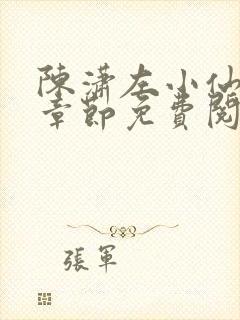 陳瀟左小仙
章節免費閱
張軍